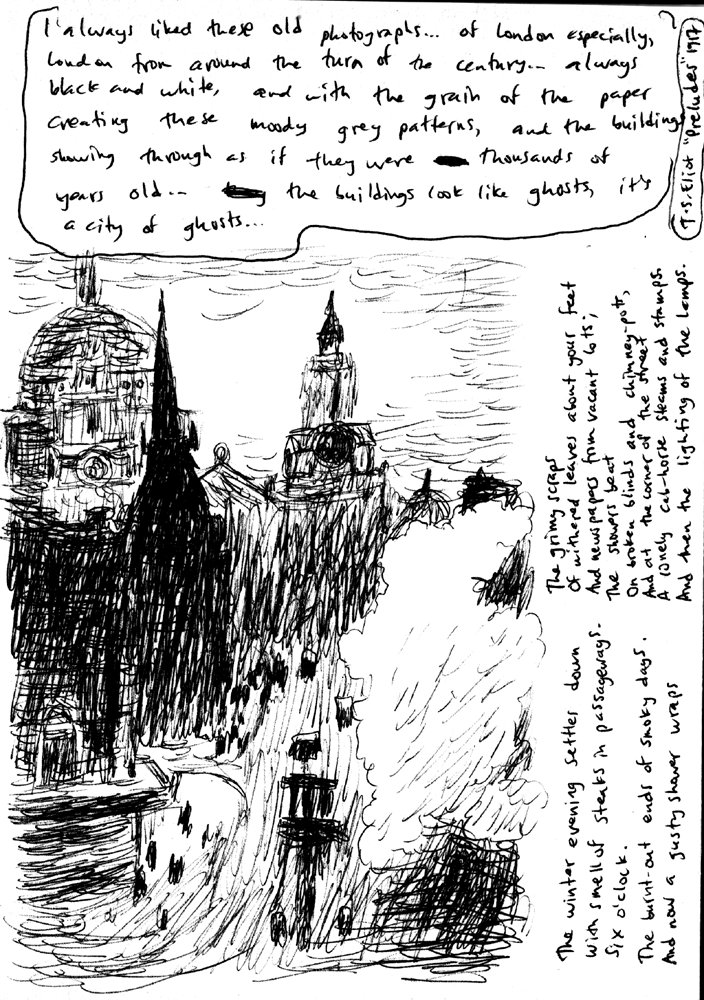 I always liked these old photographs... of London especially,
London from around the turn of the century... always
black and white, and with the grain of the paper
creating these moody grey patterns, and the buildings
showing through as if they were thousands of
years old... the buildings look like ghosts, it's
a city of ghosts...
T.S. Eliot "Preludes" 1917
The winter evening settles down
With smell of steaks in passageways.
Six o'clock.
The burnt-out ends of smoky days.
And now a gusty shower wraps
The grimy scraps
Of withered leaves about your feet
And newspapers from vacant lots;
The showers beat
On broken blinds and chimney-pots,
And at the corner of the street
A lonely cab-horse steams and stamps.
And then the lighting of the lamps.